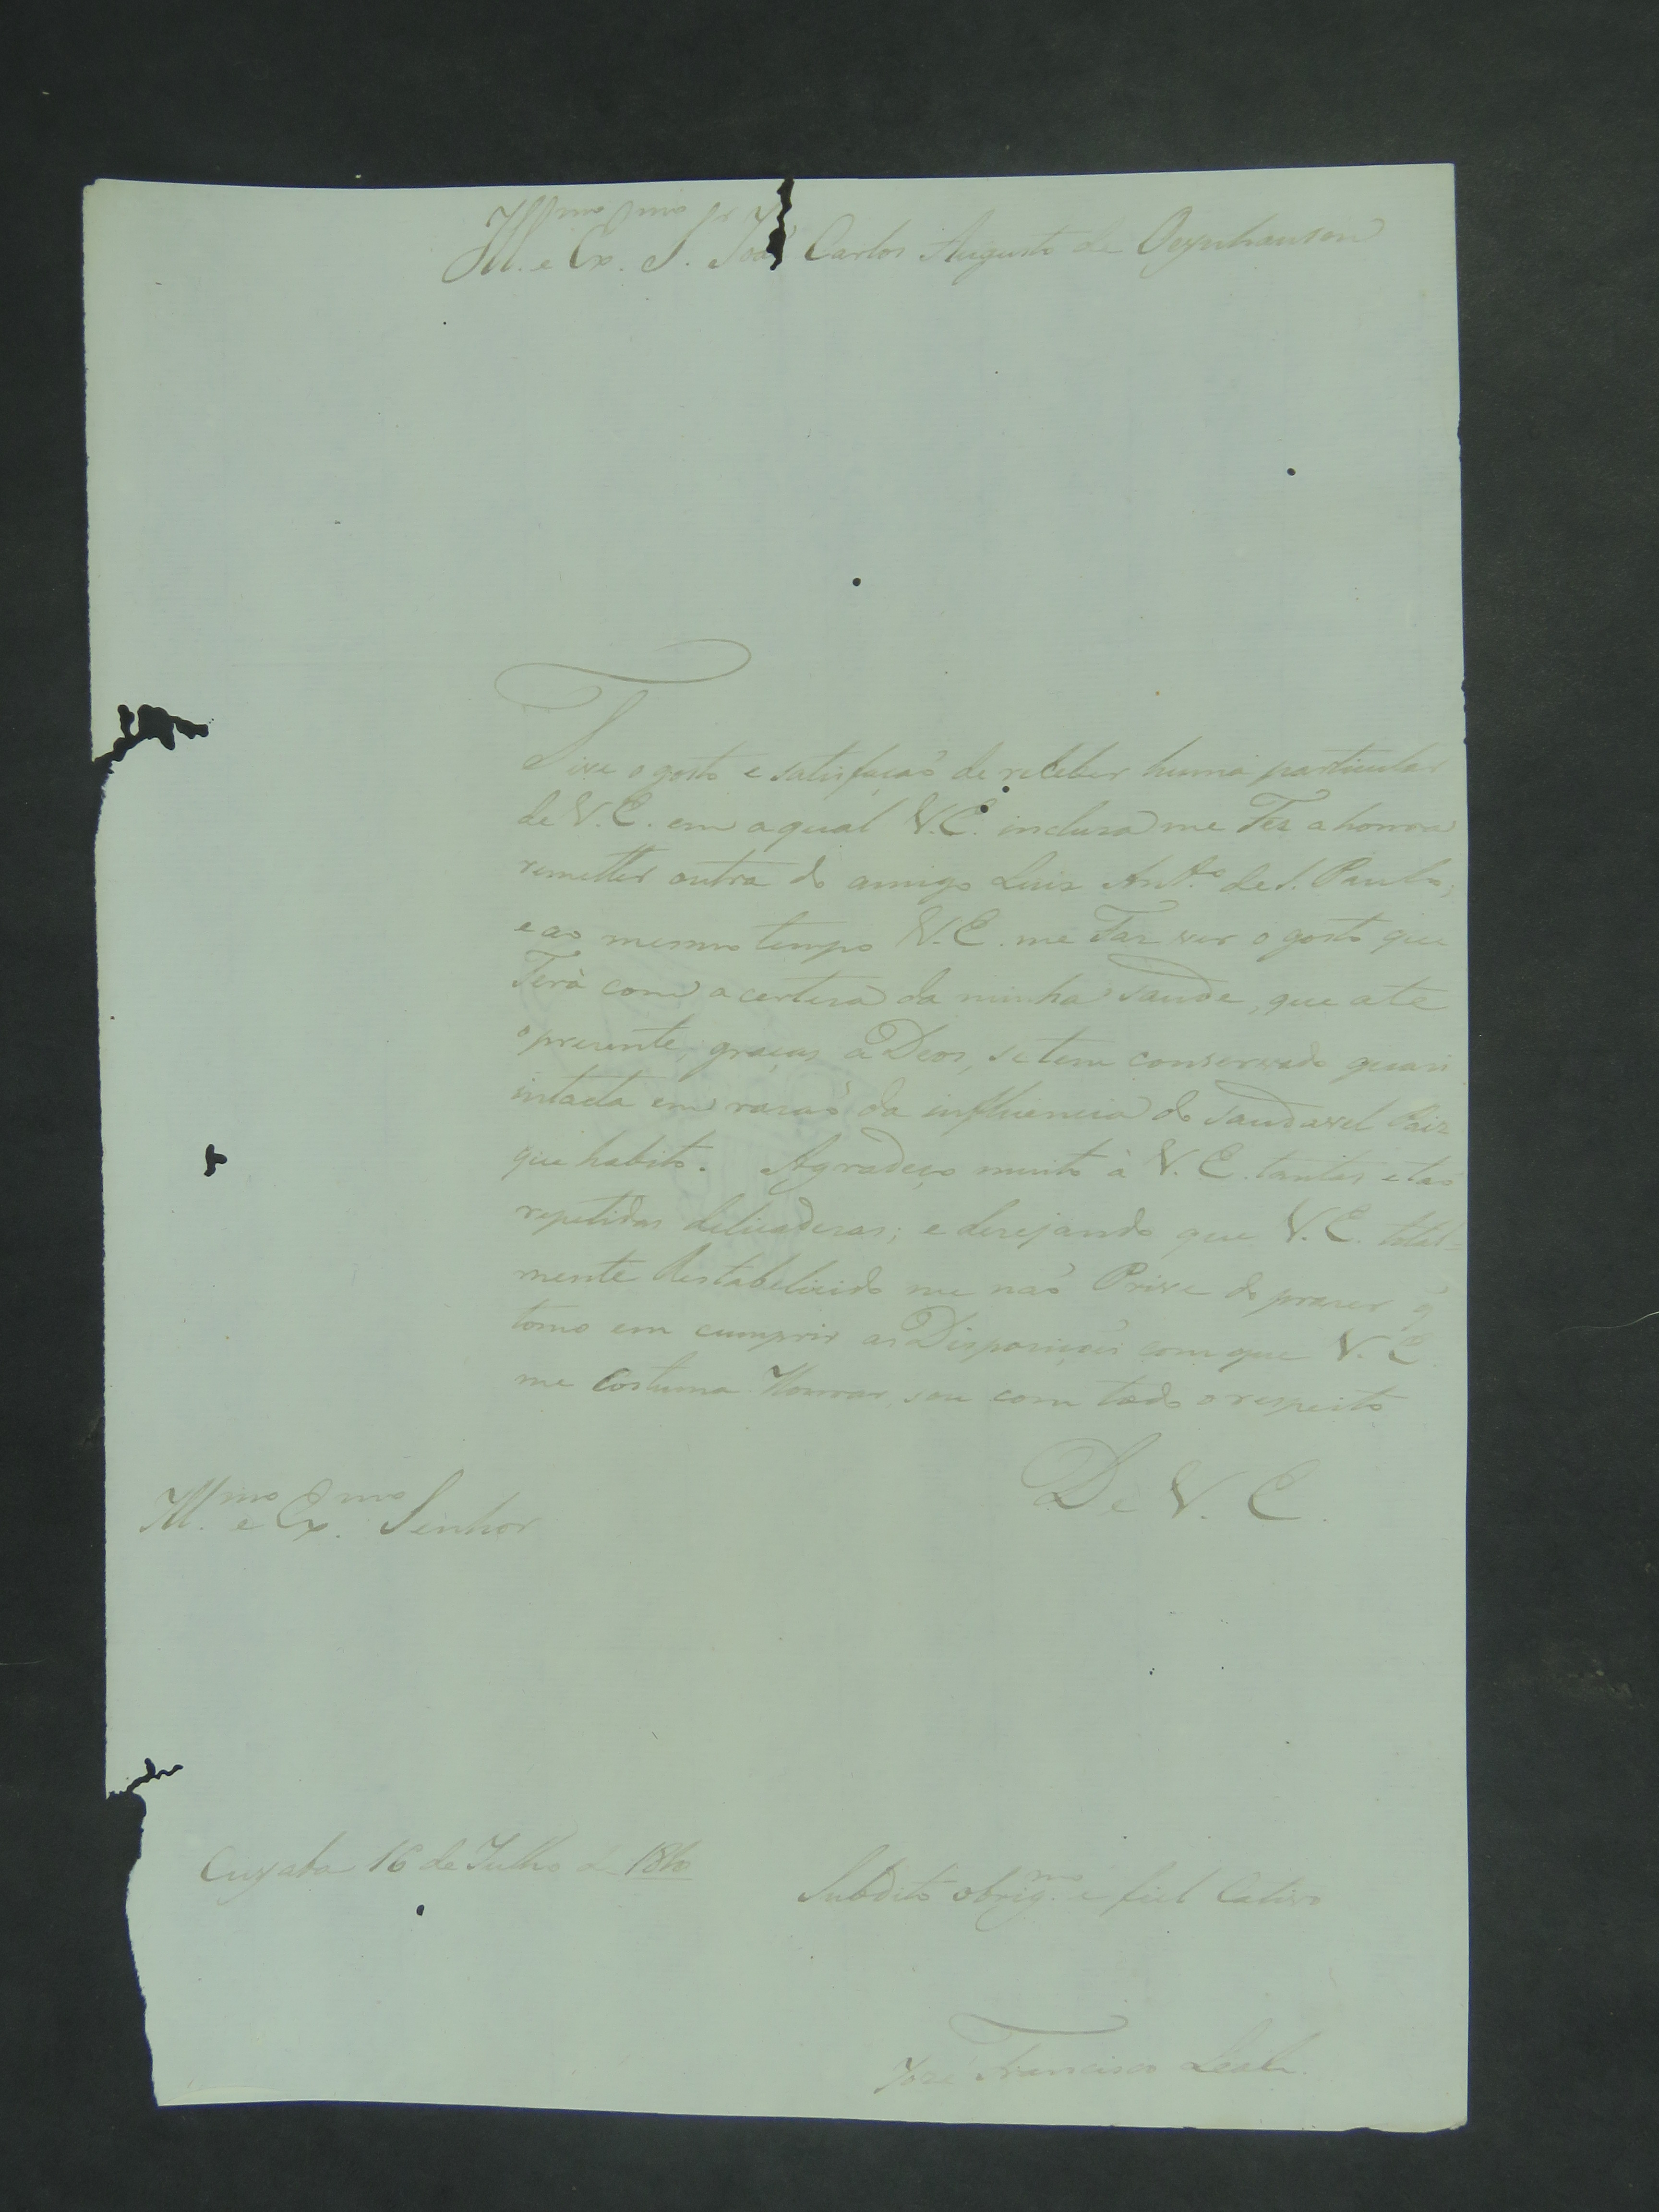 Ill.mo e Ex.mo S.r João Carlos Augusto de Oeynhausen
Tive o gosto e satisfação de receber huma particular
de V. E. em a qual V. E. inclusa me Fez a honra
remetter outra do amigo Luiz Ant.o de S. Paulo;
e ao mesmo tempo V. E. me Faz ver o gosto que
Terà com a certeza da minha saude, que ate
o presente, graças a Deos, se tem conservado quasi
intacta em razaõ da influencia do saudavel Paiz
que habito. Agradeço muito à V. E. tantas e taõ
repetidas delicadezas; e desejando que V. E. total-
mente Restabelecido me naõ Prive do prazer q̃
tomo em cumprir as Disposiçoẽs com que V. E.
me Costuma Honrar, sou com todo o respeito
De V. E.
Ill.mo e Ex.mo Senhor
Cuyaba 16 de Julho d 1810
Subdito obrig.mo e fiel Cativo
Joze Francisco Leal